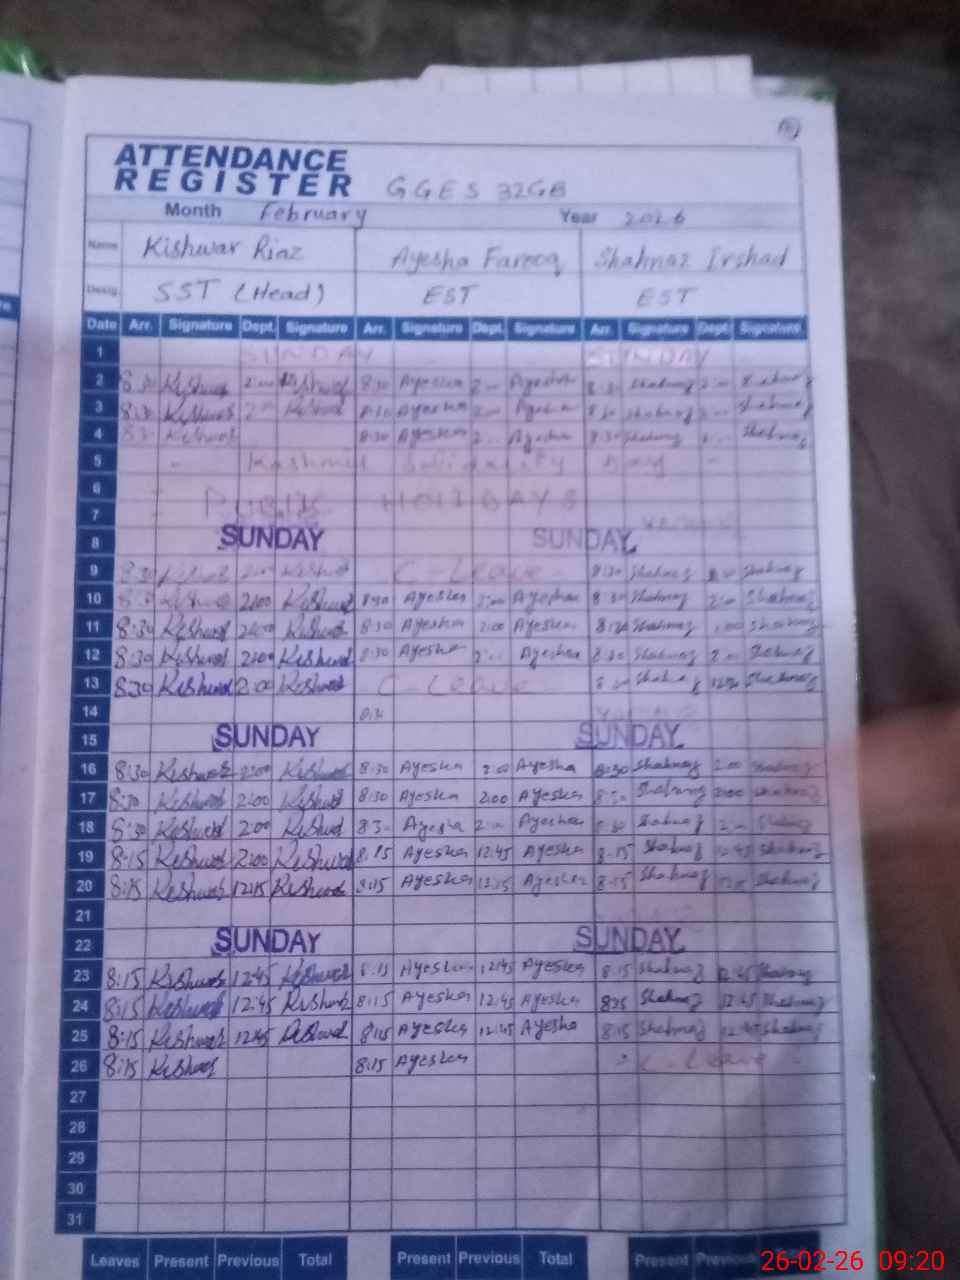 ATTENDANCE
REGISTER GGES 32GB
Month February Year 2026
Name Kishwar Riaz Ayesha Farooq Shahnaz Irshad
Desig. SST (Head) EST EST
Date Arr. Signature Dept. Signature Arr. Signature Dept. Signature Arr. Signature Dept. Signature
1 SUNDAY SUNDAY
2 8:30 Kishwar 2:00 Kishwar 8:30 Ayesha 2:00 Ayesha 8:30 Shahnaz 2:00 Shahnaz
3 8:30 Kishwar 2:00 Kishwar 8:30 Ayesha 2:00 Ayesha 8:30 Shahnaz 2:00 Shahnaz
4 8:30 Kishwar 8:30 Ayesha 2:00 Ayesha 8:30 Shahnaz 2:00 Shahnaz
5 - Kashmir Solidarity Day -
6
7 HOLIDAYS
8 SUNDAY SUNDAY
9 8:30 Kishwar 2:00 Kishwar C-Leave 8:30 Shahnaz Shahnaz
10 8:30 Kishwar 2:00 Kishwar 8:30 Ayesha 2:00 Ayesha 8:30 Shahnaz 2:00 Shahnaz
11 8:30 Kishwar 2:00 Kishwar 8:30 Ayesha 2:00 Ayesha 8:30 Shahnaz 2:00 Shahnaz
12 8:30 Kishwar 2:00 Kishwar 8:30 Ayesha 2:00 Ayesha 8:30 Shahnaz 2:00 Shahnaz
13 8:30 Kishwar 2:00 Kishwar C-Leave 8:30 Shahnaz Shahnaz
14
15 SUNDAY SUNDAY
16 8:30 Kishwar 2:00 Kishwar 8:30 Ayesha 2:00 Ayesha 8:30 Shahnaz 2:00 Shahnaz
17 8:30 Kishwar 2:00 Kishwar 8:30 Ayesha 2:00 Ayesha 8:30 Shahnaz 2:00 Shahnaz
18 8:30 Kishwar 2:00 Kishwar 8:30 Ayesha 2:00 Ayesha 8:30 Shahnaz 2:00 Shahnaz
19 8:15 Kishwar 2:00 Kishwar 8:15 Ayesha 12:45 Ayesha 8:15 Shahnaz 12:45 Shahnaz
20 8:15 Kishwar 12:15 Kishwar 8:15 Ayesha 12:15 Ayesha 8:15 Shahnaz 12:15 Shahnaz
21
22 SUNDAY SUNDAY
23 8:15 Kishwar 12:45 Kishwar 8:15 Ayesha 12:45 Ayesha 8:15 Shahnaz 12:45 Shahnaz
24 8:15 Kishwar 12:45 Kishwar 8:15 Ayesha 12:45 Ayesha Shahnaz 12:45 Shahnaz
25 8:15 Kishwar 12:45 Kishwar 8:15 Ayesha 12:45 Ayesha 8:15 Shahnaz 12:45 Shahnaz
26 8:15 Kishwar 8:15 Ayesha C-Leave
27
28
29
30
31
Leaves Present Previous Total Present Previous Total Present Previous
26-02-26 09:20